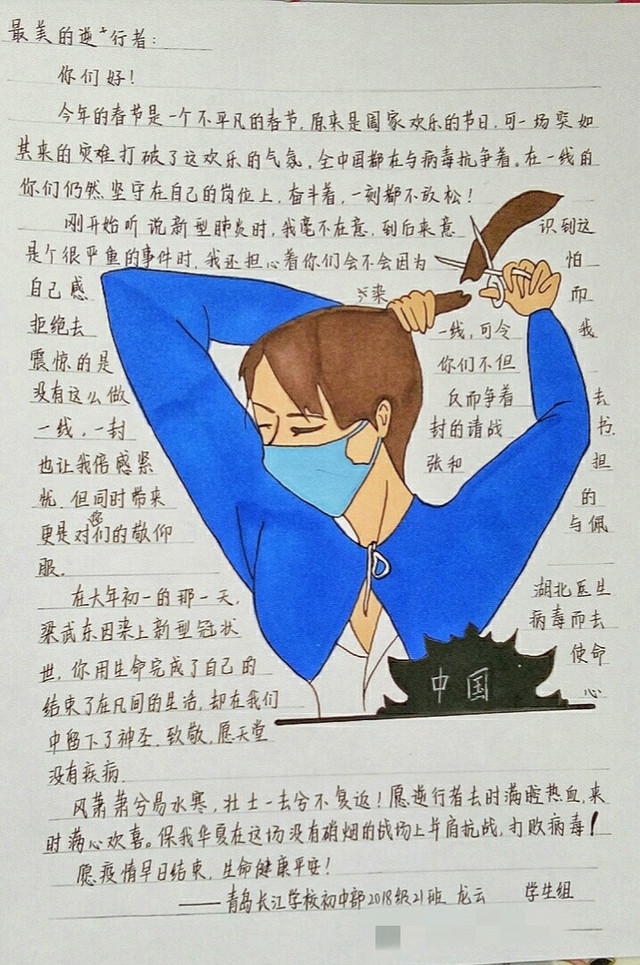 最美的逆行者:
你们好!
今年的春节是一个不平凡的春节,原来是国家欢乐的节日,可一场突如
其来的灾难打破了这欢乐的气氛,全中国都在与病毒抗争着。在一线的
你们仍然坚守在自己的岗位上,奋斗着,一刻都不放松!
刚开始听说新型肺炎时,我毫不在意,到后来意识到这
是个很严重的事件时,我还担心着你们会不会因为怕
自己感染而
拒绝去一线,可令我
震惊的是你们不但
没有这么做反而争着去
一线,一封封的请战书
也让我倍感紧张和担
忧,但同时带来的
更是对您们的敬仰与佩
服。
在大年初一的那一天,湖北医生
梁武东因染上新型冠状病毒而去
世,你用生命完成了自己的使命
结束了在凡间的生活,却在我们心
中留下了神圣,致敬,愿天堂
没有疾病。
风萧萧兮易水寒,壮士一去兮不复返!愿逆行者去时满腔热血,来
时满心欢喜。保我华夏在这场没有硝烟的战场上并肩抗战,打败病毒!
愿疫情早日结束,生命健康平安!
——青岛长江学校初中部2018级21班 龙云 学生组
中国